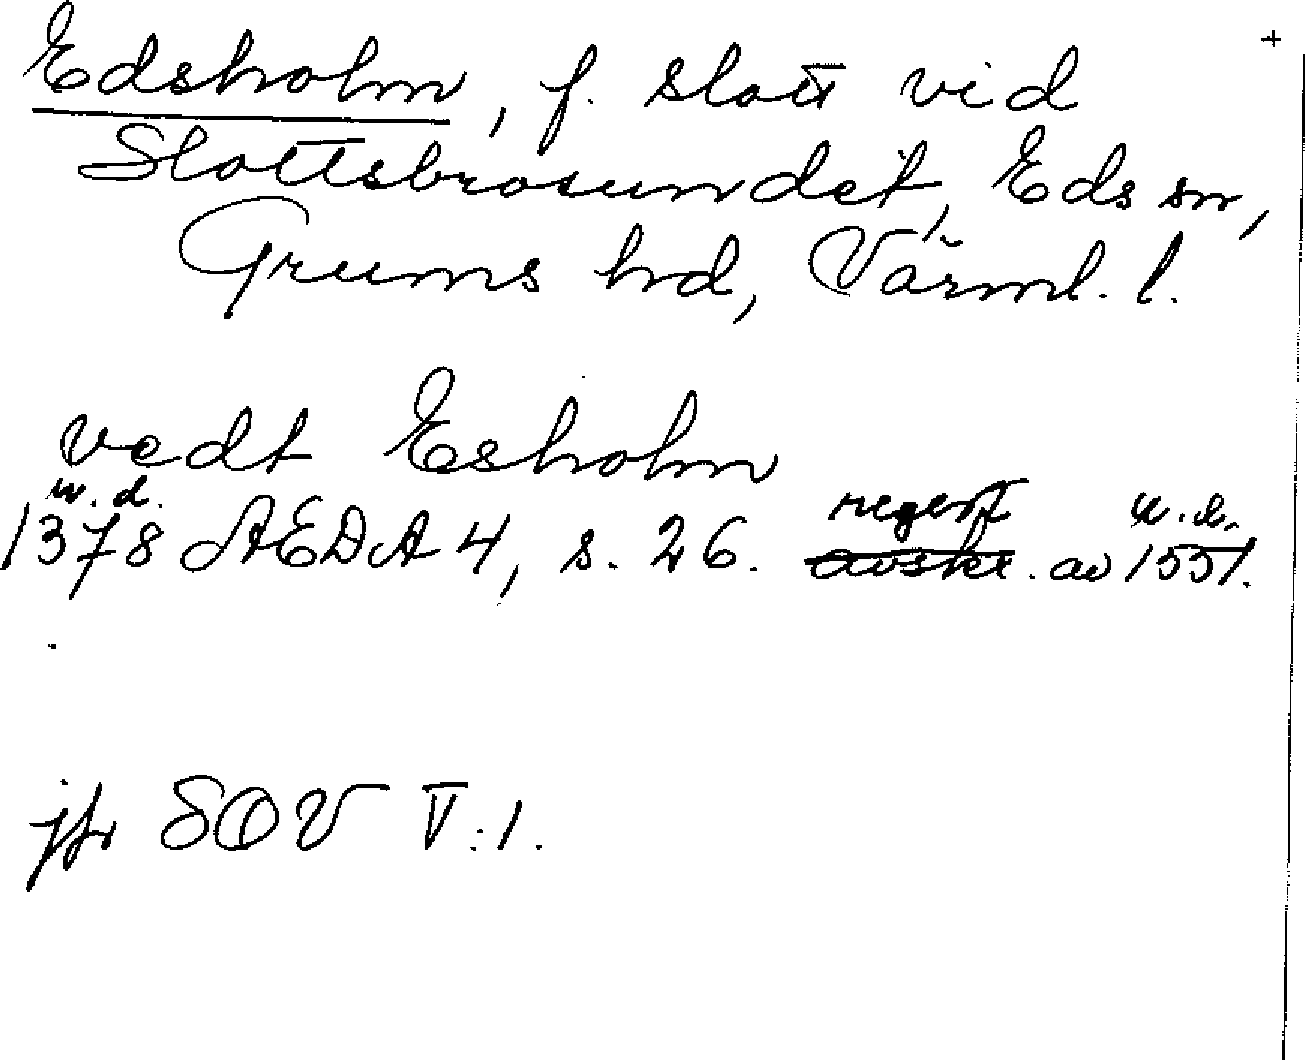 +
Edsholm, f. slott vid
Slottsbrosundet, Eds sn,
Grums hd, Värml. l.
vedt Esholm
u. d.
regest u. d.
1378 ÆDA 4, s. 26. avskr. av 1551.
jfr SOV V:1.